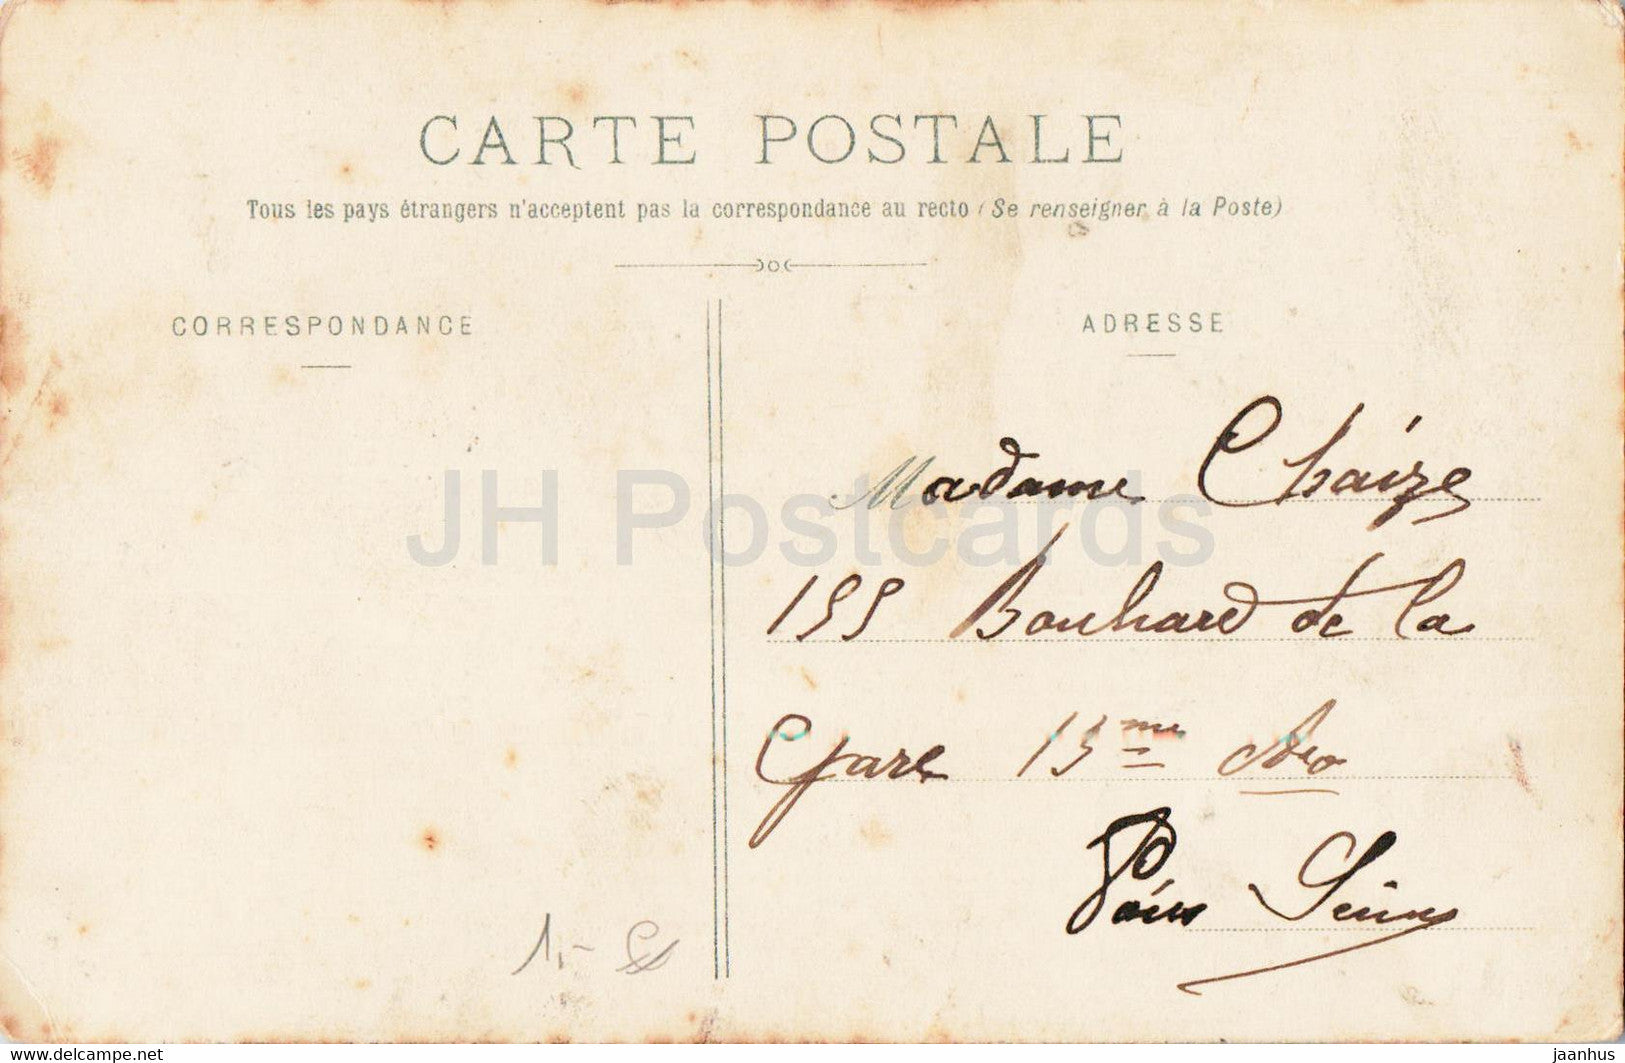 CARTE POSTALE
Tous les pays étrangers n'acceptent pas la correspondance au recto (Se renseigner à la Poste)
CORRESPONDANCE
ADRESSE
Madame Chaize
155 Boulvard de la
Gare 13me Arro
Paris Seine
1,-
JH Postcards
www.delcampe.net
jaanhus